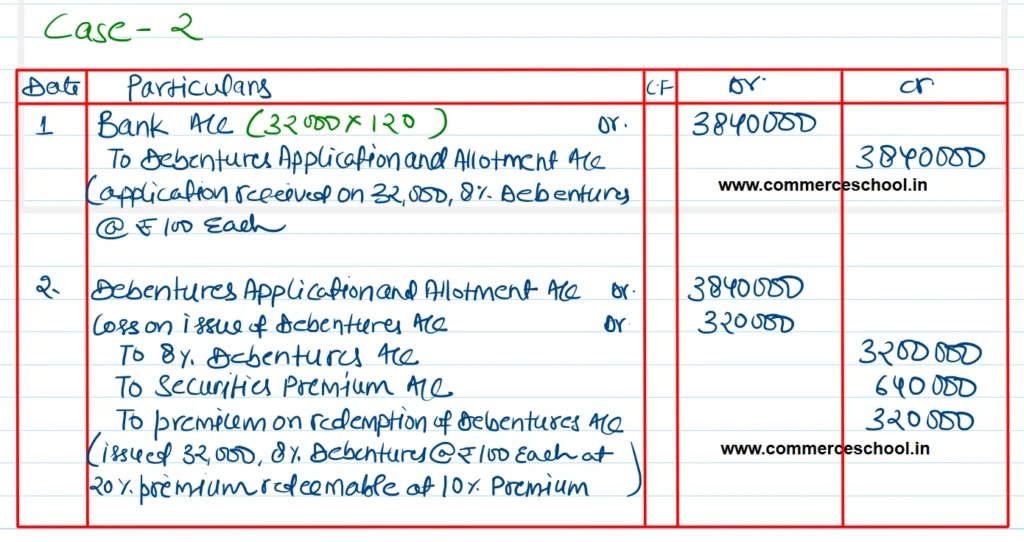 Case - 2
Date Particulars C.F Dr. Cr
1 Bank A/c (32000 x 120) Dr. 3840000
To Debentures Application and Allotment A/c 3840000
(application received on 32,000, 8% Debentures www.commerceschool.in
@ ₹ 100 Each
2. Debentures Application and Allotment A/c Dr. 3840000
Loss on issue of Debentures A/c Dr 320000
To 8% Debentures A/c 3200000
To Securities Premium A/c 640000
To premium on redemption of Debentures A/c 320000
(issued 32,000, 8% Debentures @ ₹ 100 Each at www.commerceschool.in
20% premium redeemable at 10% Premium)